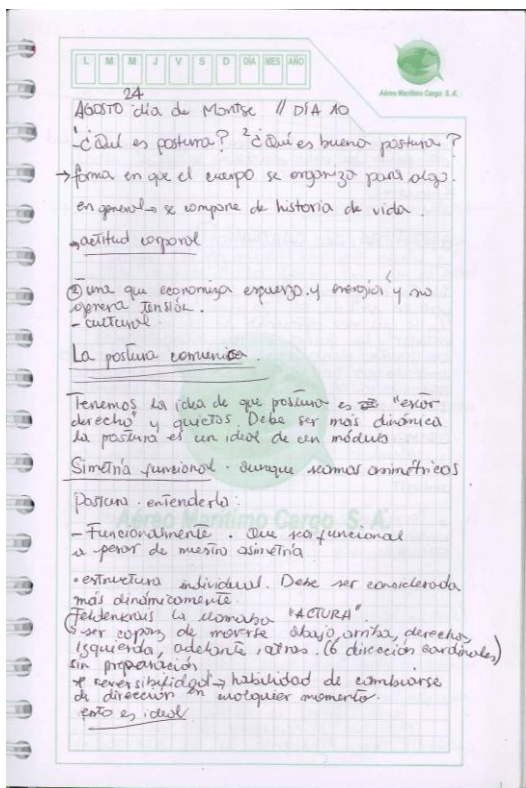 L M M J V S D DÍA MES AÑO
Aéreo Marítimo Cargo S. A.
24
AGOSTO día de Montse // DÍA 10
1 ¿Qué es postura? 2 ¿Qué es buena postura?
→ forma en que el cuerpo se organiza para algo.
en general → se compone de historia de vida.
→ actitud corporal
② una que economiza esfuerzo y energía y no
genera tensión.
- cultural
La postura comunica.
Tenemos la idea de que postura es "estar
derecho" y quietos. Debe ser más dinámica
la postura es un ideal de un módulo
Simetría funcional. aunque seamos asimétricos
Postura. entenderla:
Aéreo Marítimo Cargo S. A.
- Funcionalmente. Que sea funcional
a pesar de nuestra asimetría
• estructura individual. Debe ser considerada
más dinámicamente.
Feldenkrais la llamaba "ACTURA".
ser capaz de moverse abajo, arriba, derecha,
izquierda, adelante, atrás. (6 dirección cardinales)
sin preparación
* reversibilidad → habilidad de cambiarse
de dirección en cualquier momento.
esto es ideal